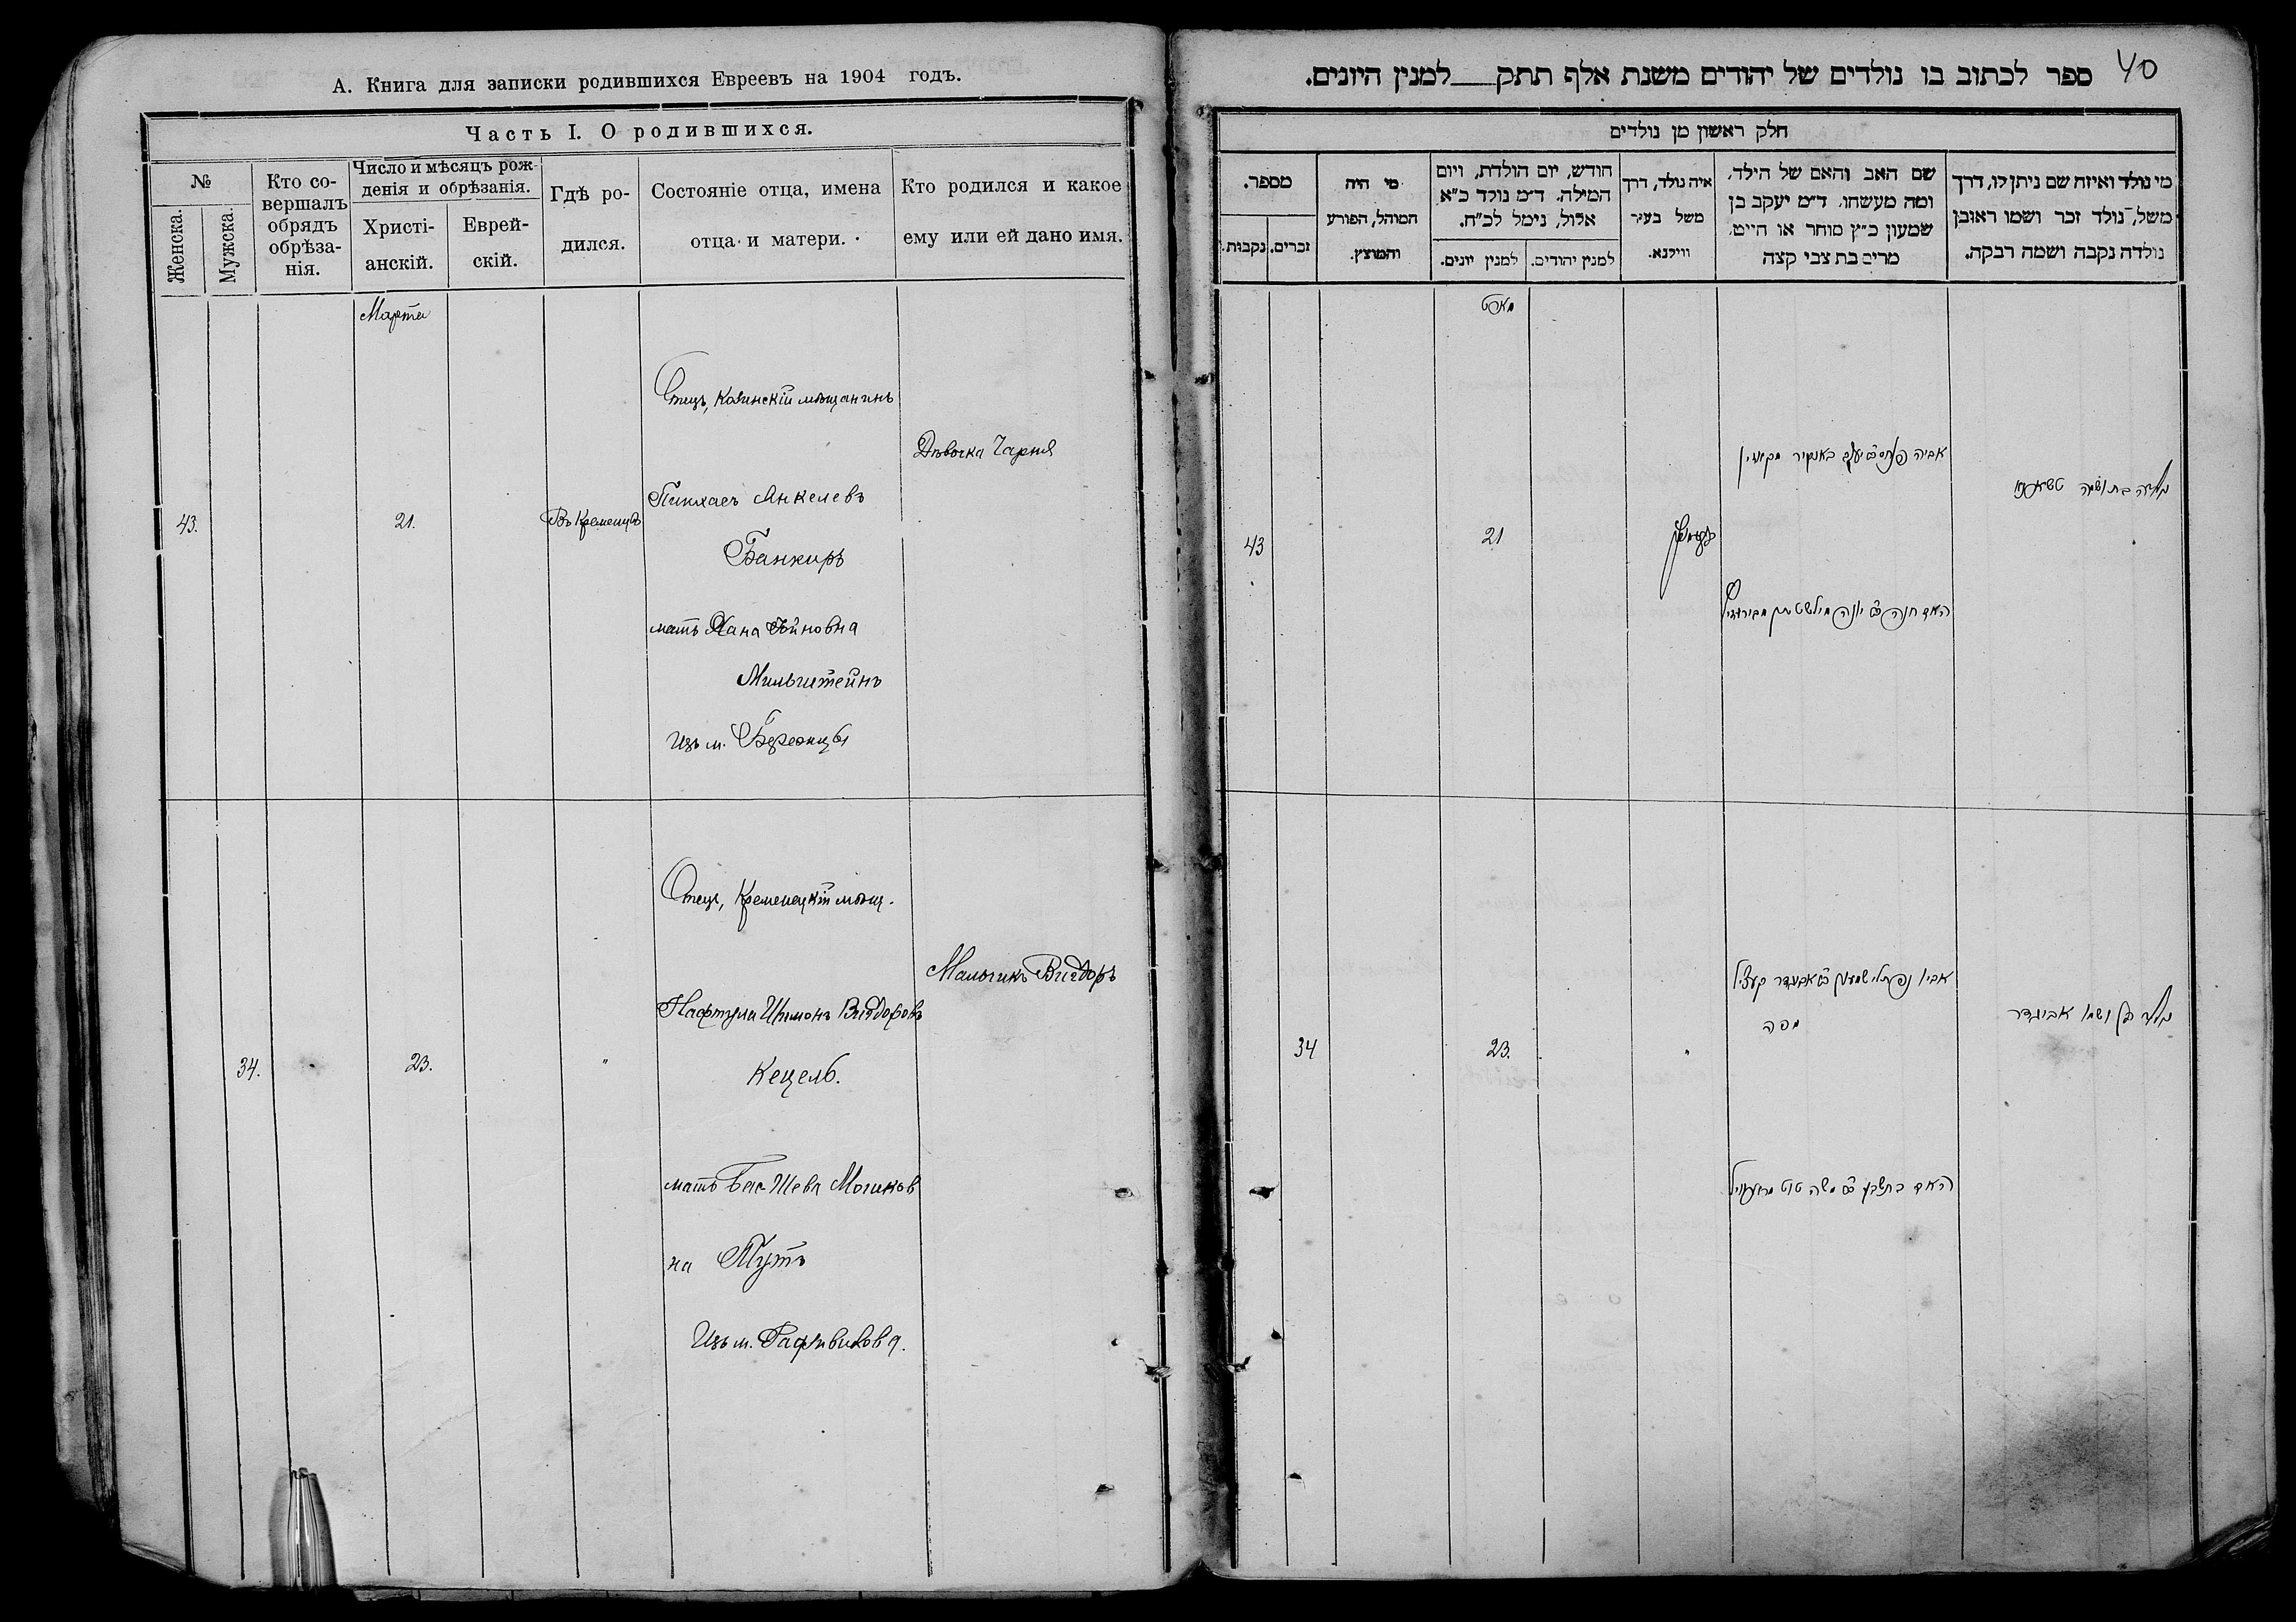 А. Книга для записки родившихся Евреевъ на 1904 годъ.
Часть I. О родившихся.
№
Женска.
Мужска.
Кто со-
вершалъ
обрядъ
обрѣза-
нія.
Число и мѣсяцъ рож-
денія и обрѣзанія.
Христі-
анскій.
Еврей-
скій.
Гдѣ ро-
дился.
Состояніе отца, имена
отца и матери.
Кто родился и какое
ему или ей дано имя.
Марта
43.
21.
Въ Кременцѣ
Отецъ, мѣщанинъ
Пинхасъ Анкелевъ
Банкиръ
мать Хана Іойновна
Мильштейнъ
Изъ м. Бережцы
Дѣвочка Чарня
34.
23.
"
Отецъ, Кременецкій мѣщ.
Нафтули Шимонъ Вигдоровъ
Кецель.
мать Бас-Шева Мошков
на Тутъ
Изъ м.
Мальчикъ Вигдоръ
40
ספר לכתוב בו נולדים של יהודים משנת אלף תתק למנין היונים.
חלק ראשון מן נולדים
מי נולד ואיזה שם ניתן לו, דרך
משל, נולד זכר ושמו ראובן
נולדה נקבה ושמה רבקה.
שם האב והאם של הילד,
ומה מעשהו. ד"מ יעקב בן
שמעון כ"ץ סוחר או חייט,
מרים בת צבי קצה
איה נולד, דרך
משל בעיר
ווילנא.
חודש, יום הולדת, ויום
המילה. ד"מ נולד כ"א
אלול, נימל לכ"ח.
למנין יהודים.
למנין יונים.
מי היה
המוהל, הפורע
והמוצץ.
מספר.
זכרים.
נקבות.
מארט
אביה פנחס ב"ר יעקב באנקיר
האם חנה ב"ר יונה מילשטיין
נולדה בת ושמה טשארנא
21
43
אביו נפתלי שמעון ב"ר אביגדור קעציל
מפה
האם בתשבע ב"ר משה טוט
נולד בן ושמו אביגדר
"
23.
34